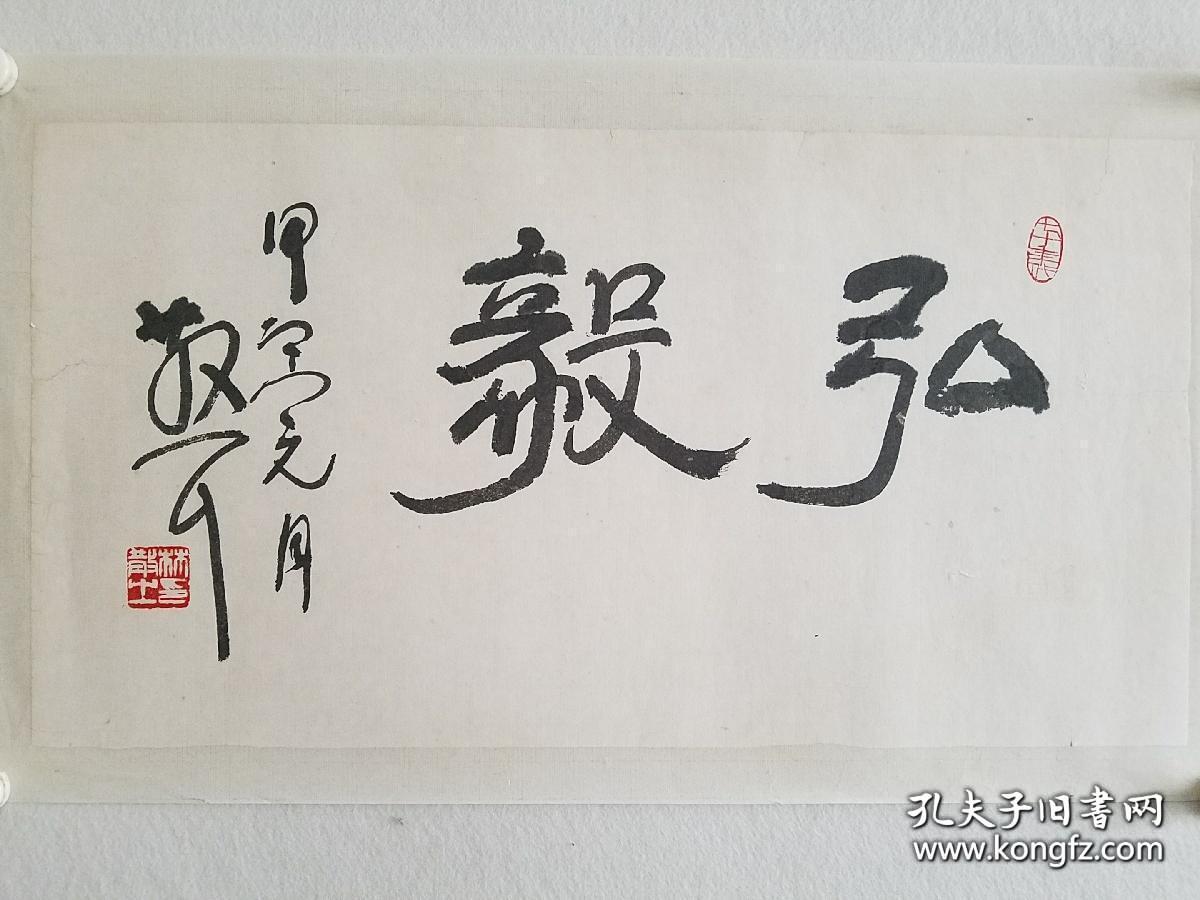 弘毅
甲寅元月
散耳
林印散之
孔夫子旧书网
www.kongfz.com